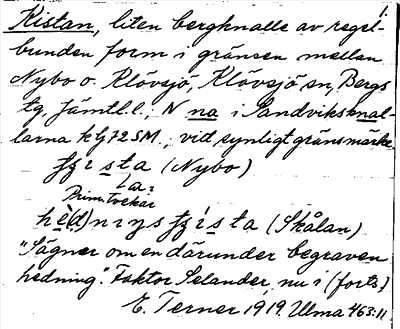 1.
Kistan, liten bergknalle av regel-
bunden form i gränsen mellan
Nybo o. Klövsjö, Klövsjö sn, Bergs
tg, Jämtl. l., N na i Sandviksknal-
larna kG72SM.; vitt synligt gränsmärke.
sta (Nybo)
Prim. tvekar
(Skålan)
"Sägner om en därunder begraven
hedning". Faktor Selander, nu i (forts)
E. Terner 1919. Ulma 463:11